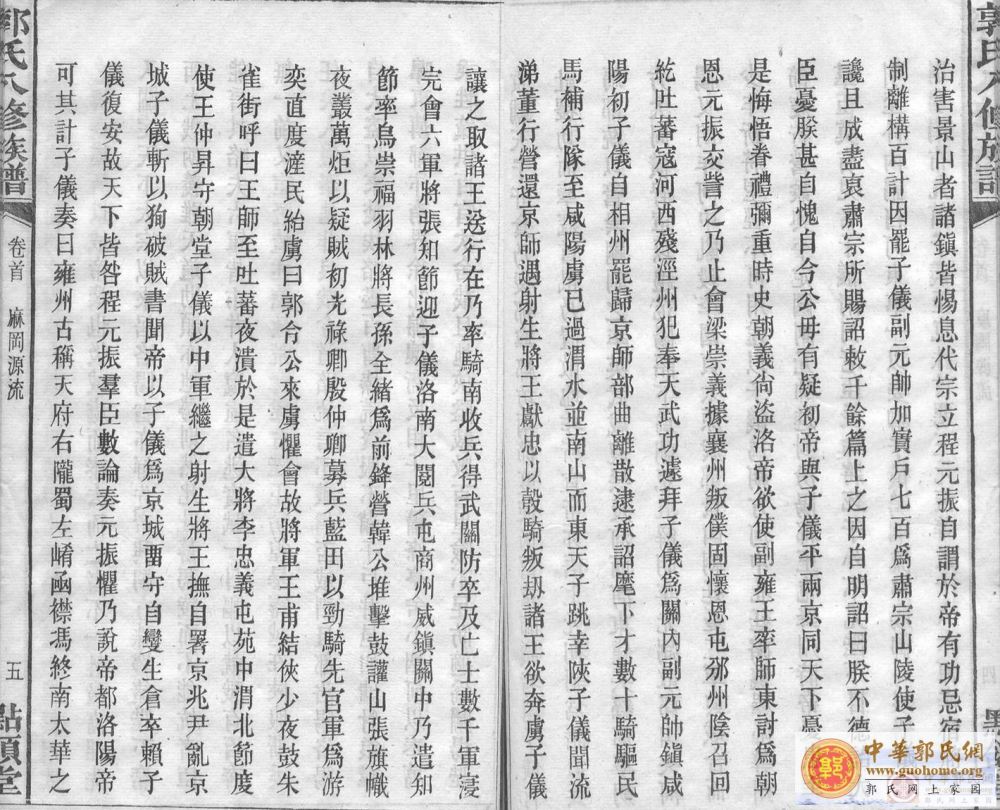 郭氏八修族譜
治害景山者諸鎮皆惕息代宗立程元振自謂於帝有功忌宿
制離構百計因罷子儀副元帥加實戶七百爲肅宗山陵使子
讒且成盡裒肅宗所賜詔敕千餘篇上之因自明詔曰朕不德
臣憂朕甚自愧自今公毋有疑初帝與子儀平兩京同天下憂
是悔悟眷禮彌重時史朝義尙盜洛帝欲使副雍王率師東討爲朝
恩元振交訾之乃止會梁崇義據襄州叛僕固懷恩屯邠州陰召回
紇吐蕃寇河西殘涇州犯奉天武功遽拜子儀爲關內副元帥鎮咸
陽初子儀自相州罷歸京師部曲離散逮承詔麾下才數十騎驅民
馬補行隊至咸陽虜已過渭水並南山而東天子跳幸陜子儀聞流
涕董行營還京師遇射生將王獻忠以彀騎叛刼諸王欲奔虜子儀
讓之取諸王送行在乃率騎南收兵得武關防卒及亡士數千軍寖
完會六軍將張知節迎子儀洛南大閱兵屯商州威鎮關中乃遣知
節率烏崇福羽林將長孫全緒爲前鋒營韓公堆擊鼓讙山張旗幟
夜叢萬炬以疑賊初光祿卿殷仲卿募兵藍田以勁騎先官軍爲游
奕直度滻民紿虜曰郭令公來虜懼會故將軍王甫結俠少夜鼓朱
雀街呼曰王師至吐蕃夜潰於是遣大將李忠義屯苑中渭北節度
使王仲昇守朝堂子儀以中軍繼之射生將王撫自署京兆尹亂京
城子儀斬以狥破賊書聞帝以子儀爲京城畱守自變生倉卒賴子
儀復安故天下皆咎程元振羣臣數論奏元振懼乃說帝都洛陽帝
可其計子儀奏曰雍州古稱天府右隴蜀左崤函襟馮終南太華之
郭氏八修族譜
卷首
麻岡源流
五
點頭堂
中華郭氏網
www.guohome.org
郭氏網上家園